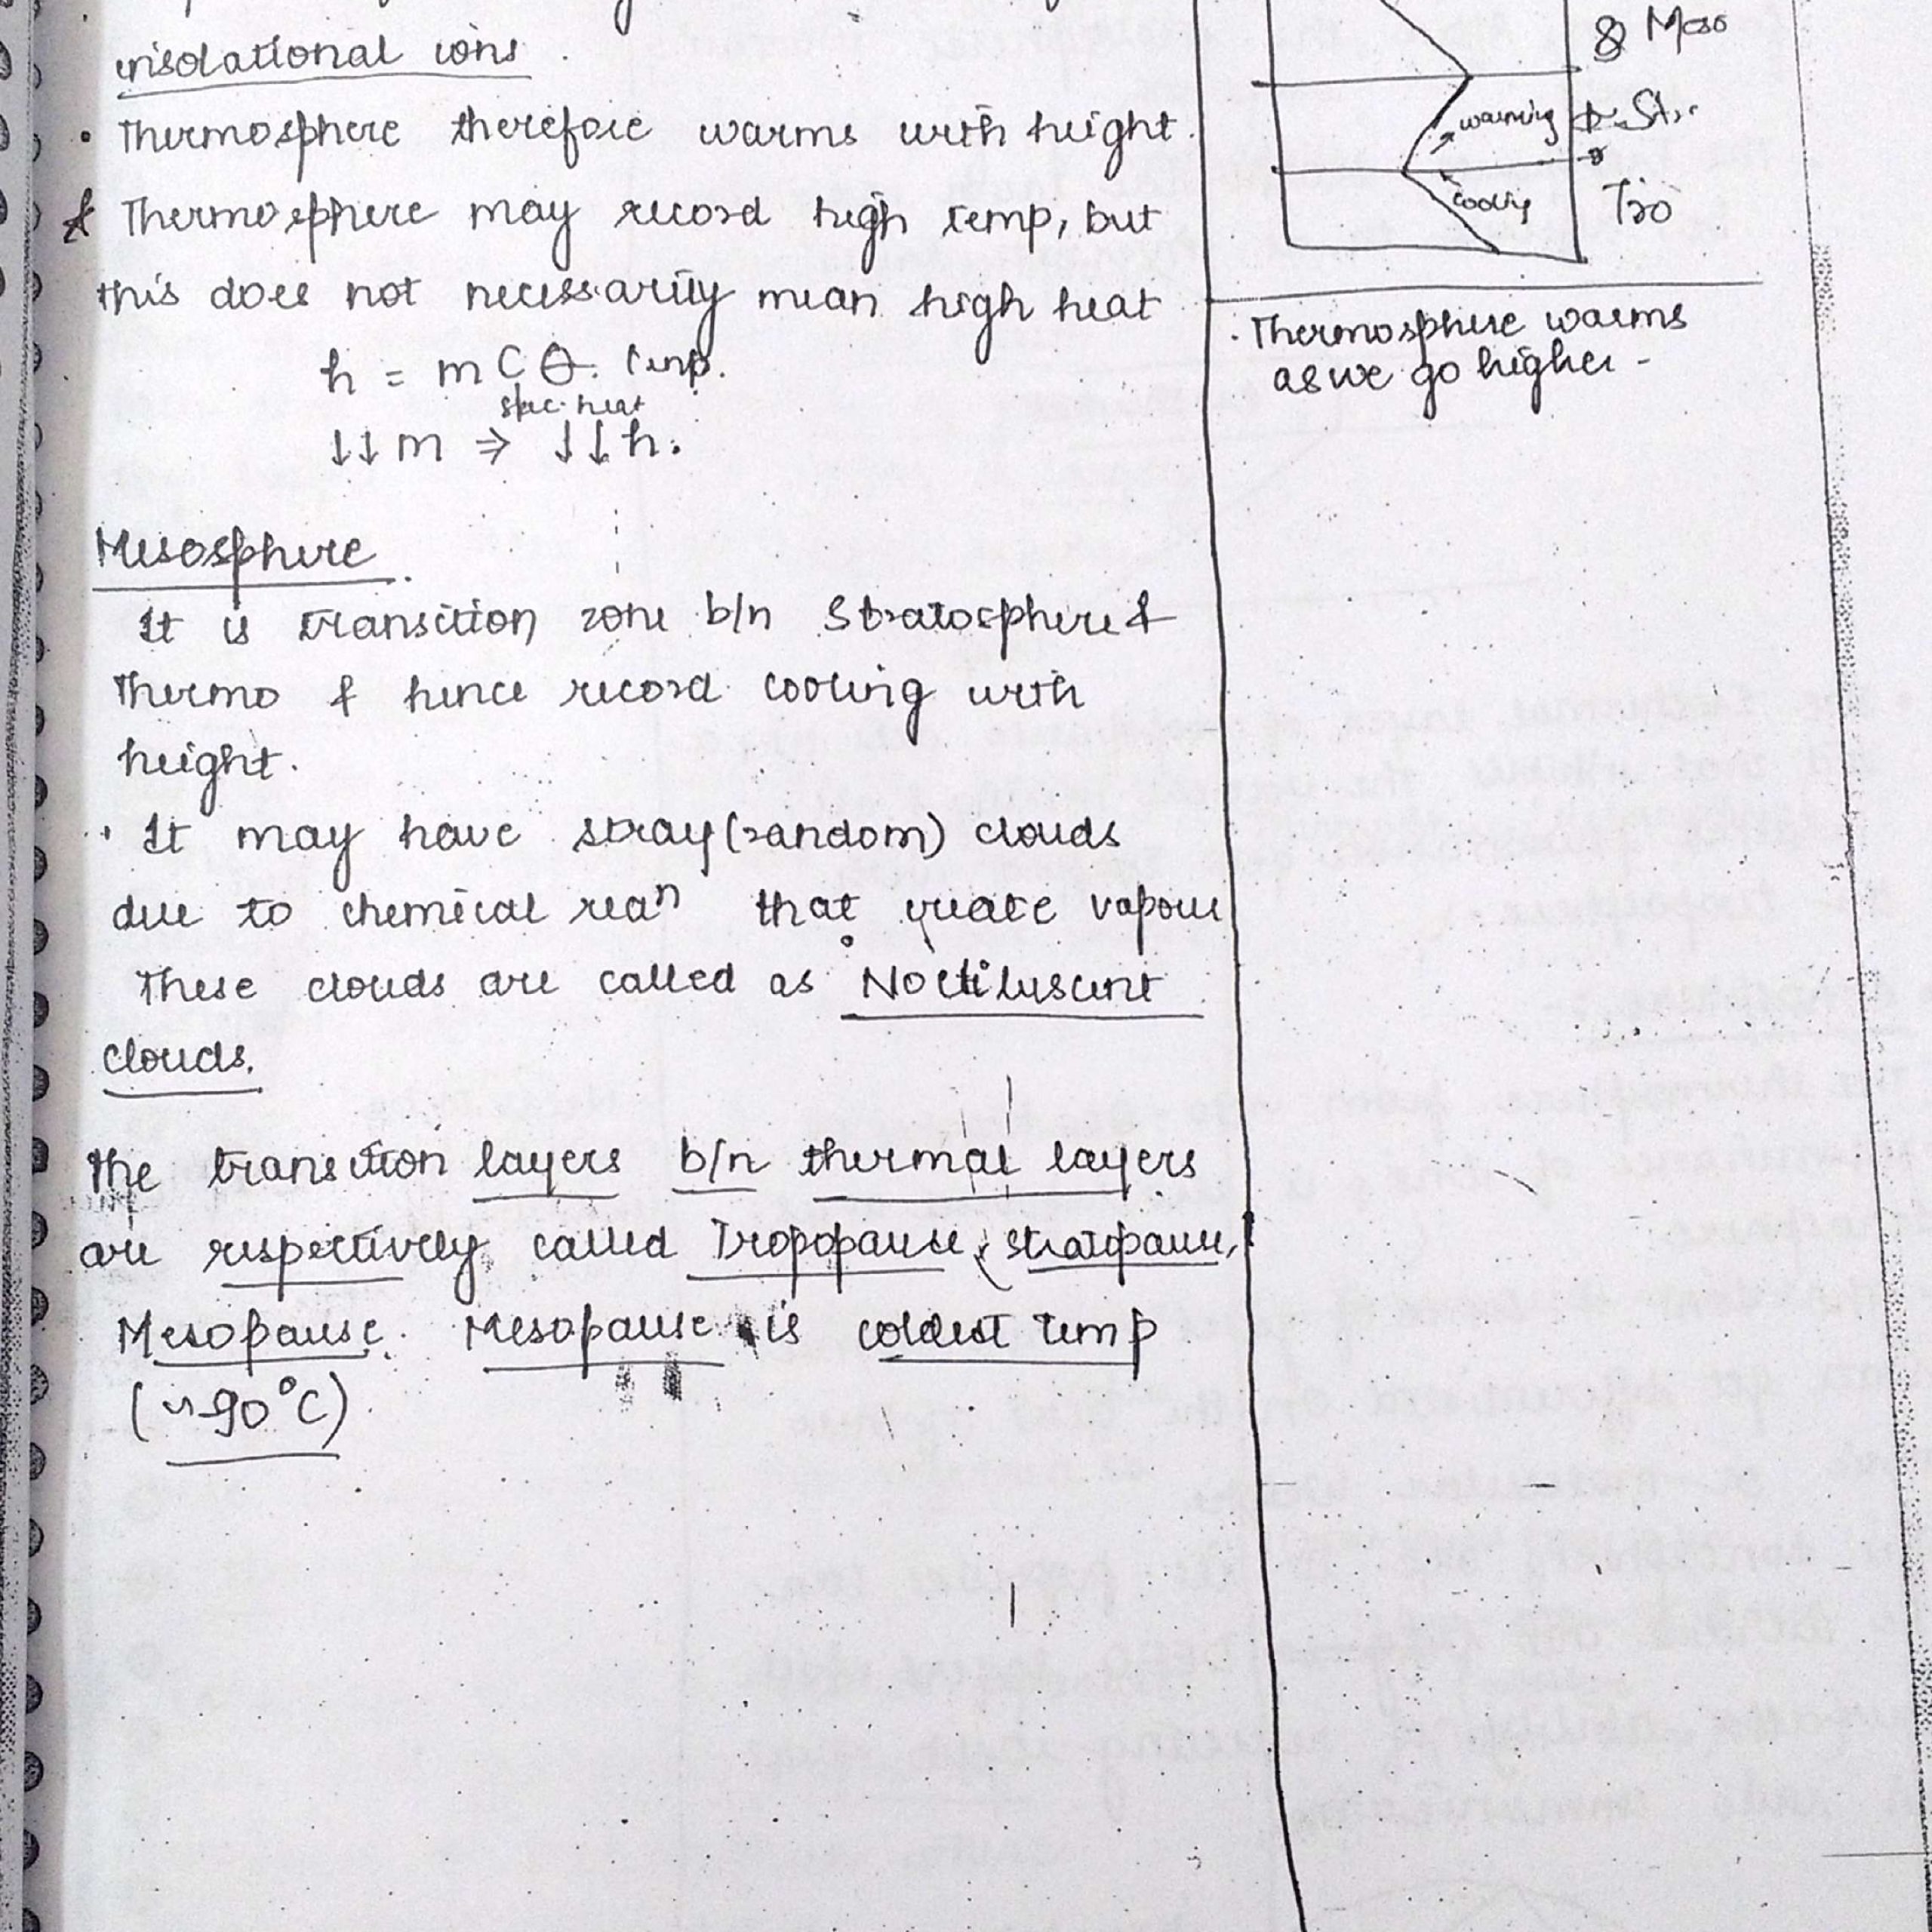 insolational ions.
• Thermosphere therefore warms with height.
Thermosphere may record high temp, but
this does not necessarily mean high heat
h = m C θ. temp.
spec. heat
↓↓ m ⇒ ↓↓ h.
Mesosphere.
It is transition zone b/n Stratosphere &
Thermo & hence record cooling with
height.
• It may have stray (random) clouds
due to chemical reaⁿ that create vapour
These clouds are called as Noctiluscent
clouds.
The transition layers b/n thermal layers
are respectively called Tropopause, stratopause,
Mesopause. Mesopause is coldest temp
(~90°C).
Meso
warming
Str.
cooling
Tro
• Thermosphere warms
as we go higher -